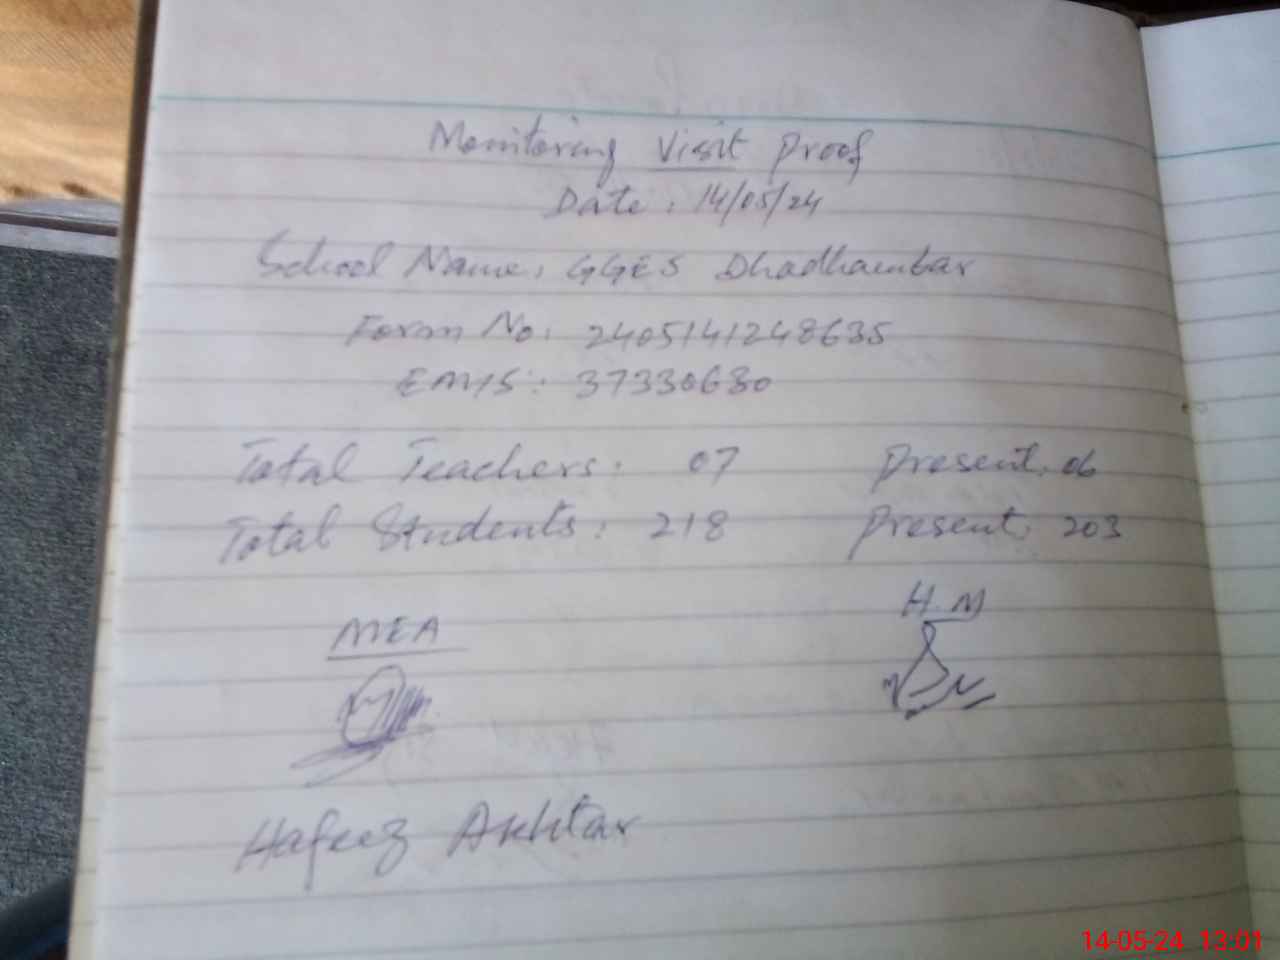 Monitoring Visit Proof
Date: 14/05/24
School Name: GGES Dhadhambar
Form No: 2405141248635
EMIS: 37330630
Total Teachers: 07 Present: 06
Total Students: 218 Present: 203
MEA H.M
Hafeez Akhtar
14-05-24 13:01